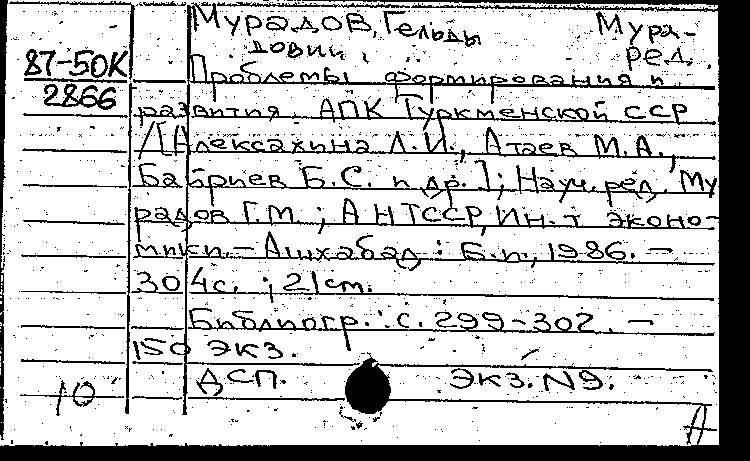 Мурадов, Гельды Мура-
дович, ред.
87-50К
2866
Проблемы формирования и
развития АПК Туркменской ССР
/[Алексахина Л.И., Атаев М.А.,
Бабриев Б.С. и др.]; Науч. ред. Му
радов Г.М.; АН ТССР, Ин-т эконо-
мики. – Ашхабад: Б.и., 1986. –
304с.; 21см.
Библиогр.: с. 299-302. –
150 экз.
ДСП. Экз. N9.
10
А